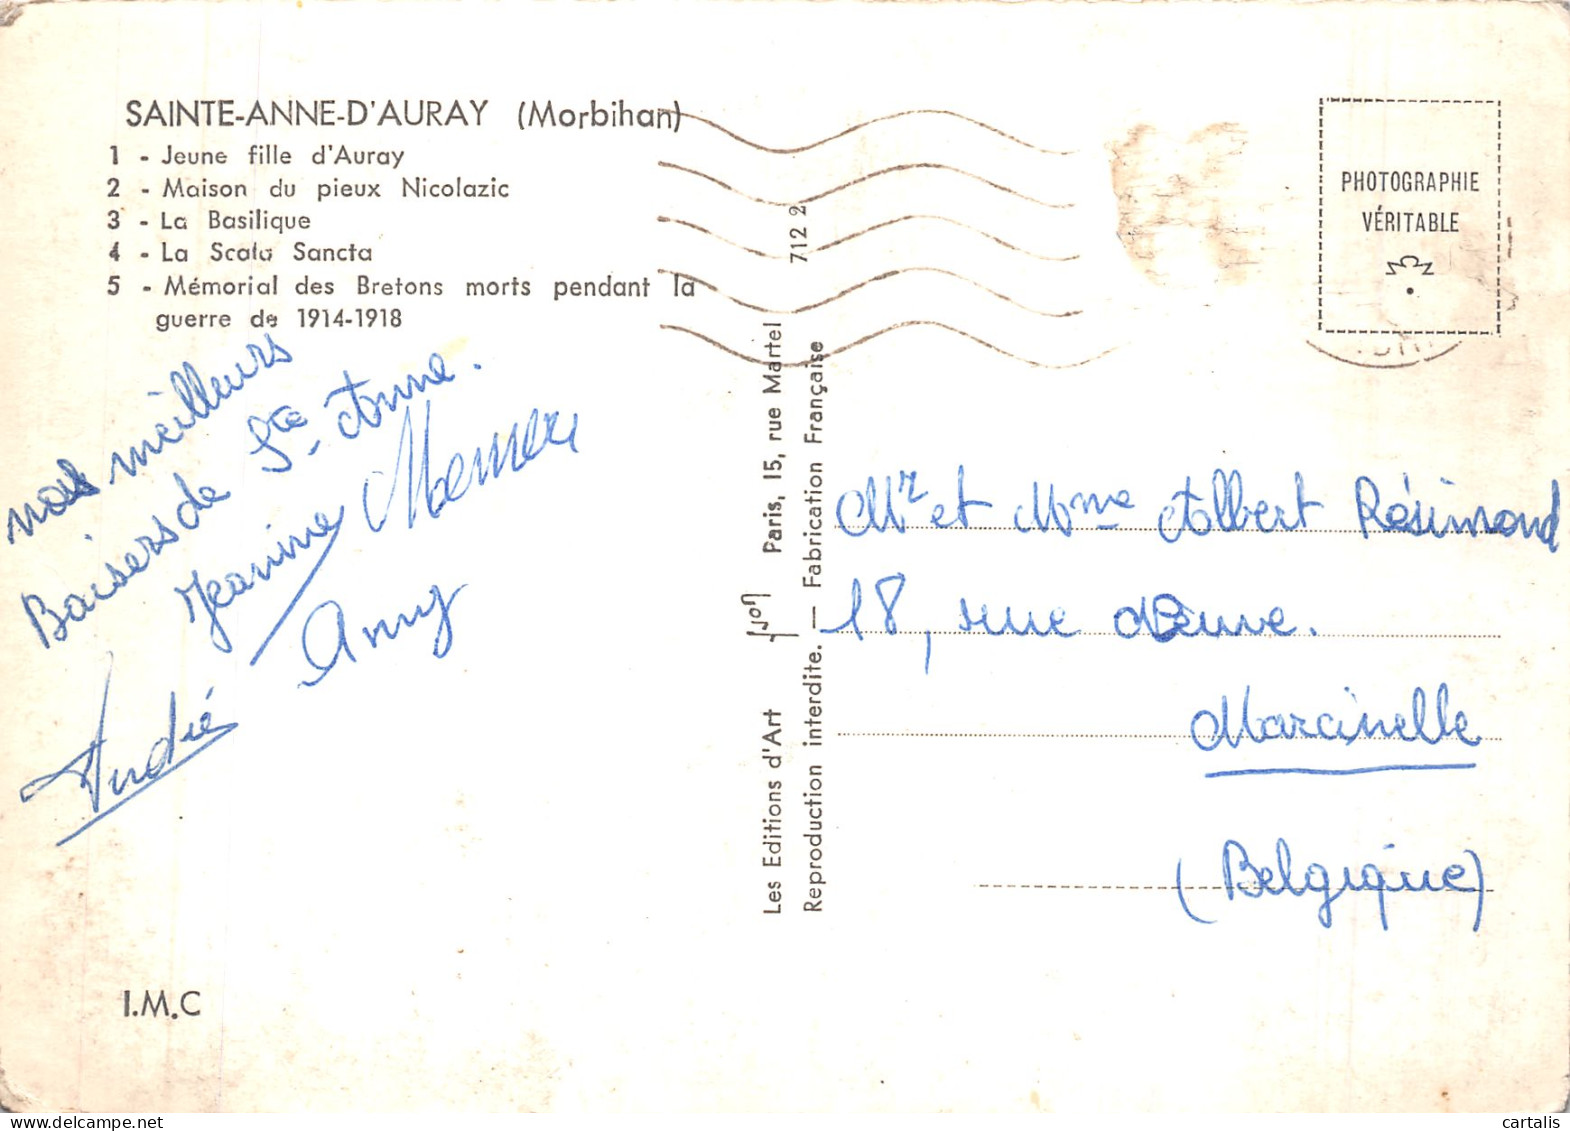 SAINTE-ANNE-D'AURAY (Morbihan)
1 - Jeune fille d'Auray
2 - Maison du pieux Nicolazic
3 - La Basilique
4 - La Scala Sancta
5 - Mémorial des Bretons morts pendant la
guerre de 1914-1918
nos meilleurs
Baisers de Ste Anne.
Jeanine
Anny
André
I.M.C
Les Editions d'Art Paris, 15, rue Martel 712 2
Reproduction interdite. — Fabrication Française
PHOTOGRAPHIE
VÉRITABLE
Mr et Mme Albert Résimond
18, rue
Marcinelle
(Belgique)
cartalis